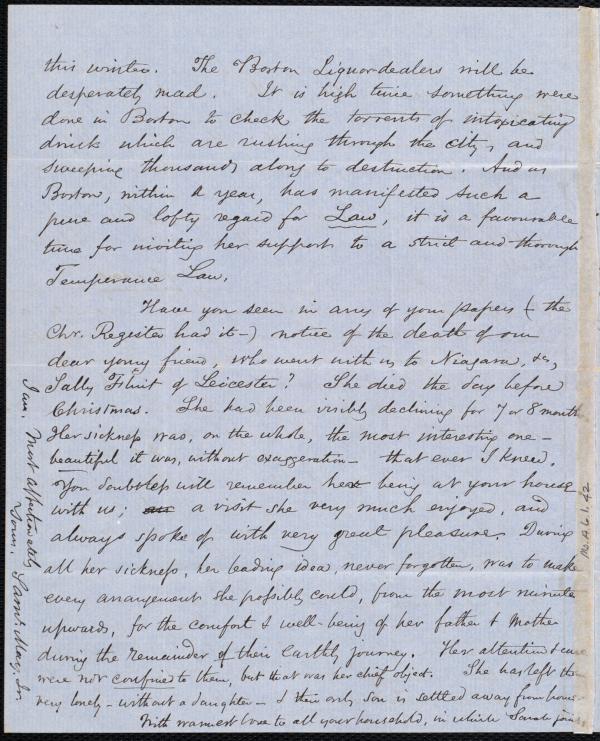 this winter. The Boston Liquor-dealers will be
desperately mad. It is high time something were
done in Boston to check the torrents of intoxicating
drink which are rushing through the city, and
sweeping thousands along to destruction. And as
Boston, within a year, has manifested such a
pure and lofty regard for Law, it is a favourable
time for inviting her support to a strict and thorough
Temperance Law.
Have you seen in any of your papers (the
Chr. Register had it-) notice of the death of our
dear young friend, who went with us to Niagara, &c,
Sally Flint of Leicester? She died the day before
Christmas. She had been visibly declining for 7 or 8 months
Her sickness was, on the whole, the most interesting one-
beautiful it was, without exaggeration- that ever I knew.
You doubtless will remember her being at your house
with us; a visit she very much enjoyed, and
always spoke of with very great pleasure. During
all her sickness, her leading idea, never forgotten, was to make
every arrangement she possibly could, from the most minute
upwards, for the comfort & well-being of her father & mother
during the remainder of their Earthly journey. Her attention & care
were not confined to them, but that was her chief object. She has left them
very lonely - without a daughter - & their only son is settled away from home
With warmest love to all your household, in which Sarah joins,
I am, Most affectionately
Yours, Saml. May, Jr.
Ms.A.6.1.42